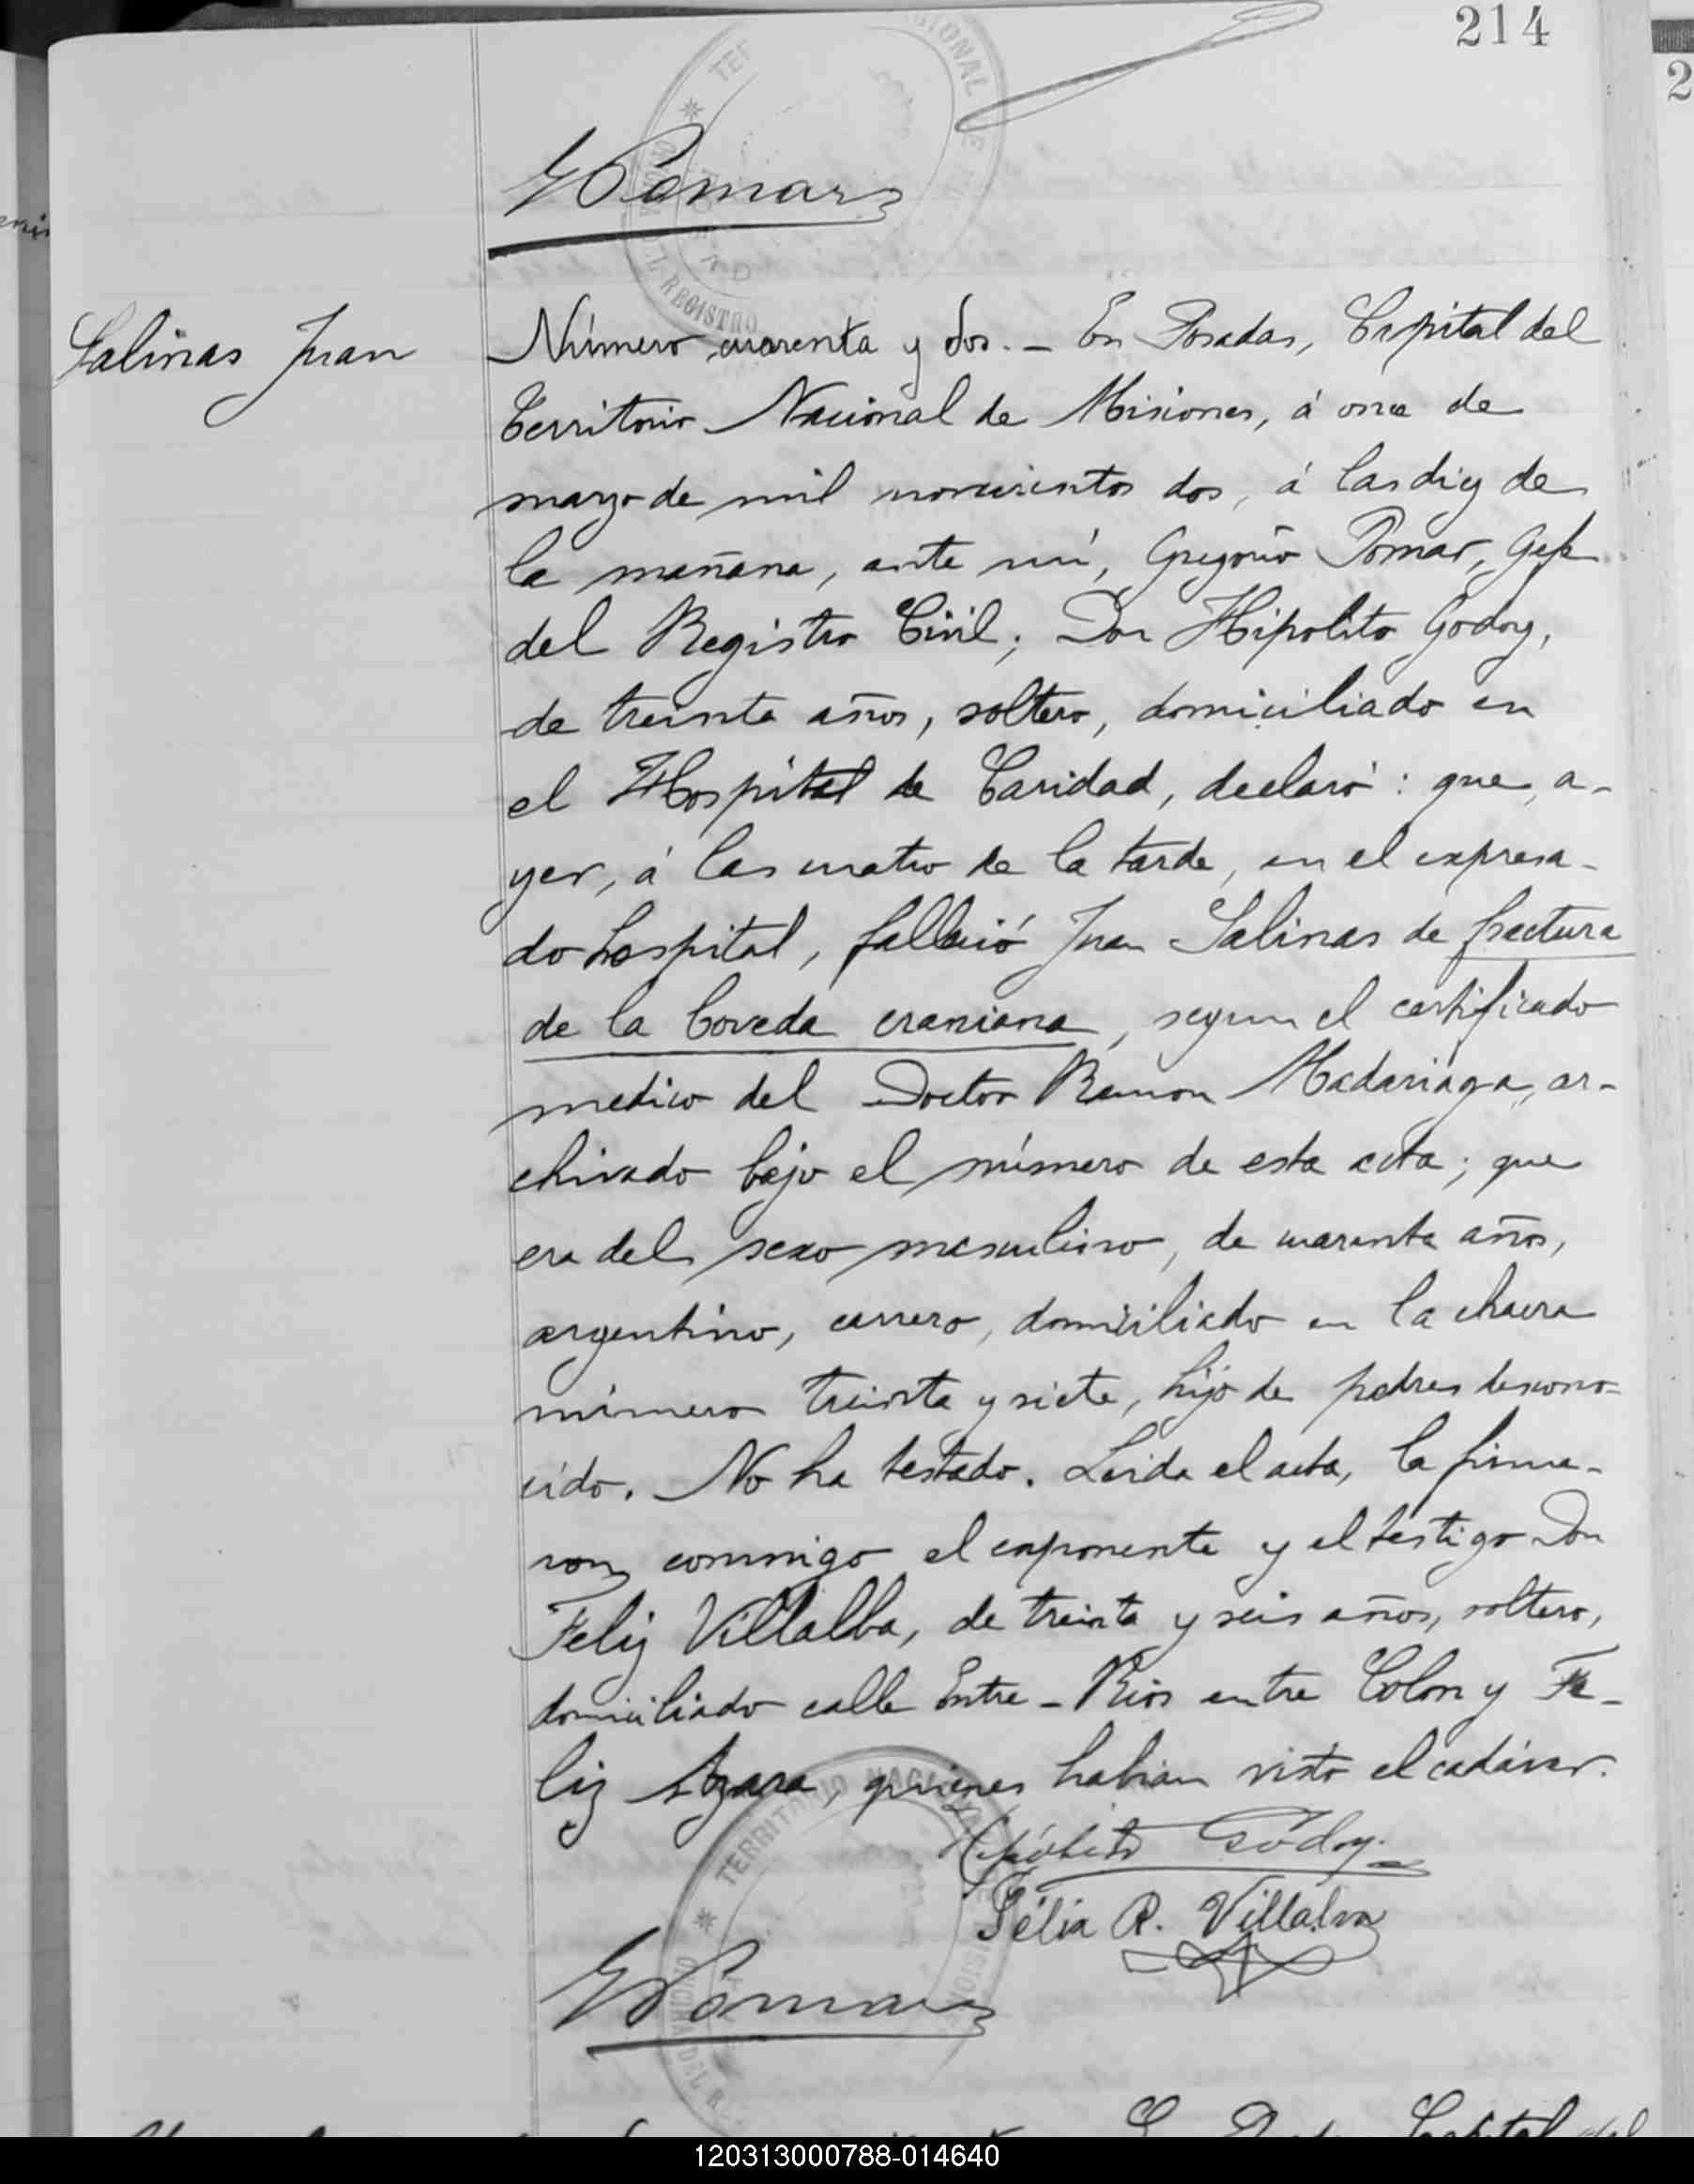 214
2
GPomar
Salinas Juan
Número cuarenta y dos. – En Posadas, Capital del
Territorio Nacional de Misiones, á once de
marzo de mil novecientos dos, á las diez de
la mañana, ante mí, Gregorio Pomar, Gefe
del Registro Civil; Don Hipolito Godoy,
de treinta años, soltero, domiciliado en
el Hospital de Caridad, declaró: que, a-
yer, á las cuatro de la tarde, en el expresa-
do hospital, falleció Juan Salinas de fractura
de la boveda craniana, segun el certificado
medico del Doctor Ramon Madariaga, ar-
chivado bajo el número de esta acta; que
era del sexo masculino, de cuarenta años,
argentino, carrero, domiciliado en la chacra
número treinta y siete, hijo de padres descono-
cido. No ha testado. Leida el acta, la firma-
ron conmigo el exponente y el testigo Don
Feliz Villalba, de treinta y seis años, soltero,
domiciliado calle Entre-Rios entre Colon y Fe-
liz Azara, quienes habian visto el cadáver.
TERRITORIO NACIONAL
Hipólito Godoy.
Félix R. Villalva
GPomar
120313000788-014640